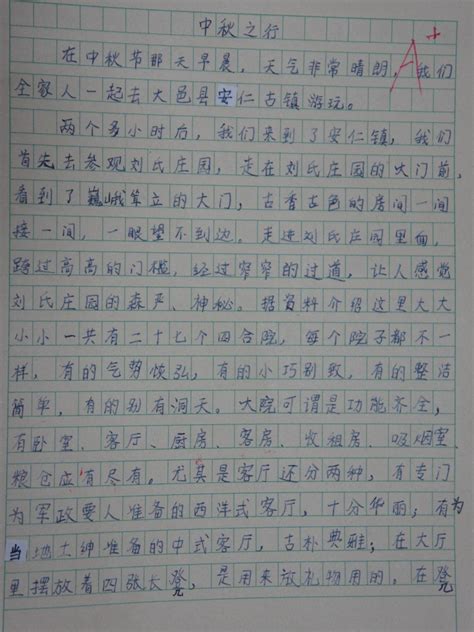 中秋之行
A+
在中秋节那天早晨，天气非常晴朗，我们
全家人一起去大邑县安仁古镇游玩。
两个多小时后，我们来到了安仁镇，我们
首先去参观刘氏庄园，走在刘氏庄园的大门前，
看到了巍峨耸立的大门，古香古色的房间一间
接一间，一眼望不到边。走进刘氏庄园里面，
跨过高高的门槛，经过窄窄的过道，让人感觉
刘氏庄园的森严、神秘。据资料介绍这里大大
小小一共有二十七个四合院，每个院子都不一
样，有的气势恢弘，有的小巧别致，有的整洁
简单，有的别有洞天。大院可谓是功能齐全，
有卧室、客厅、厨房、客房、收租房、吸烟室、
粮仓应有尽有。尤其是客厅还分两种，有专门
为军政要人准备的西洋式客厅，十分华丽；有为
当地大绅准备的中式客厅，古朴典雅；在大厅
里摆放着四张长凳，是用来放礼物用的，在凳